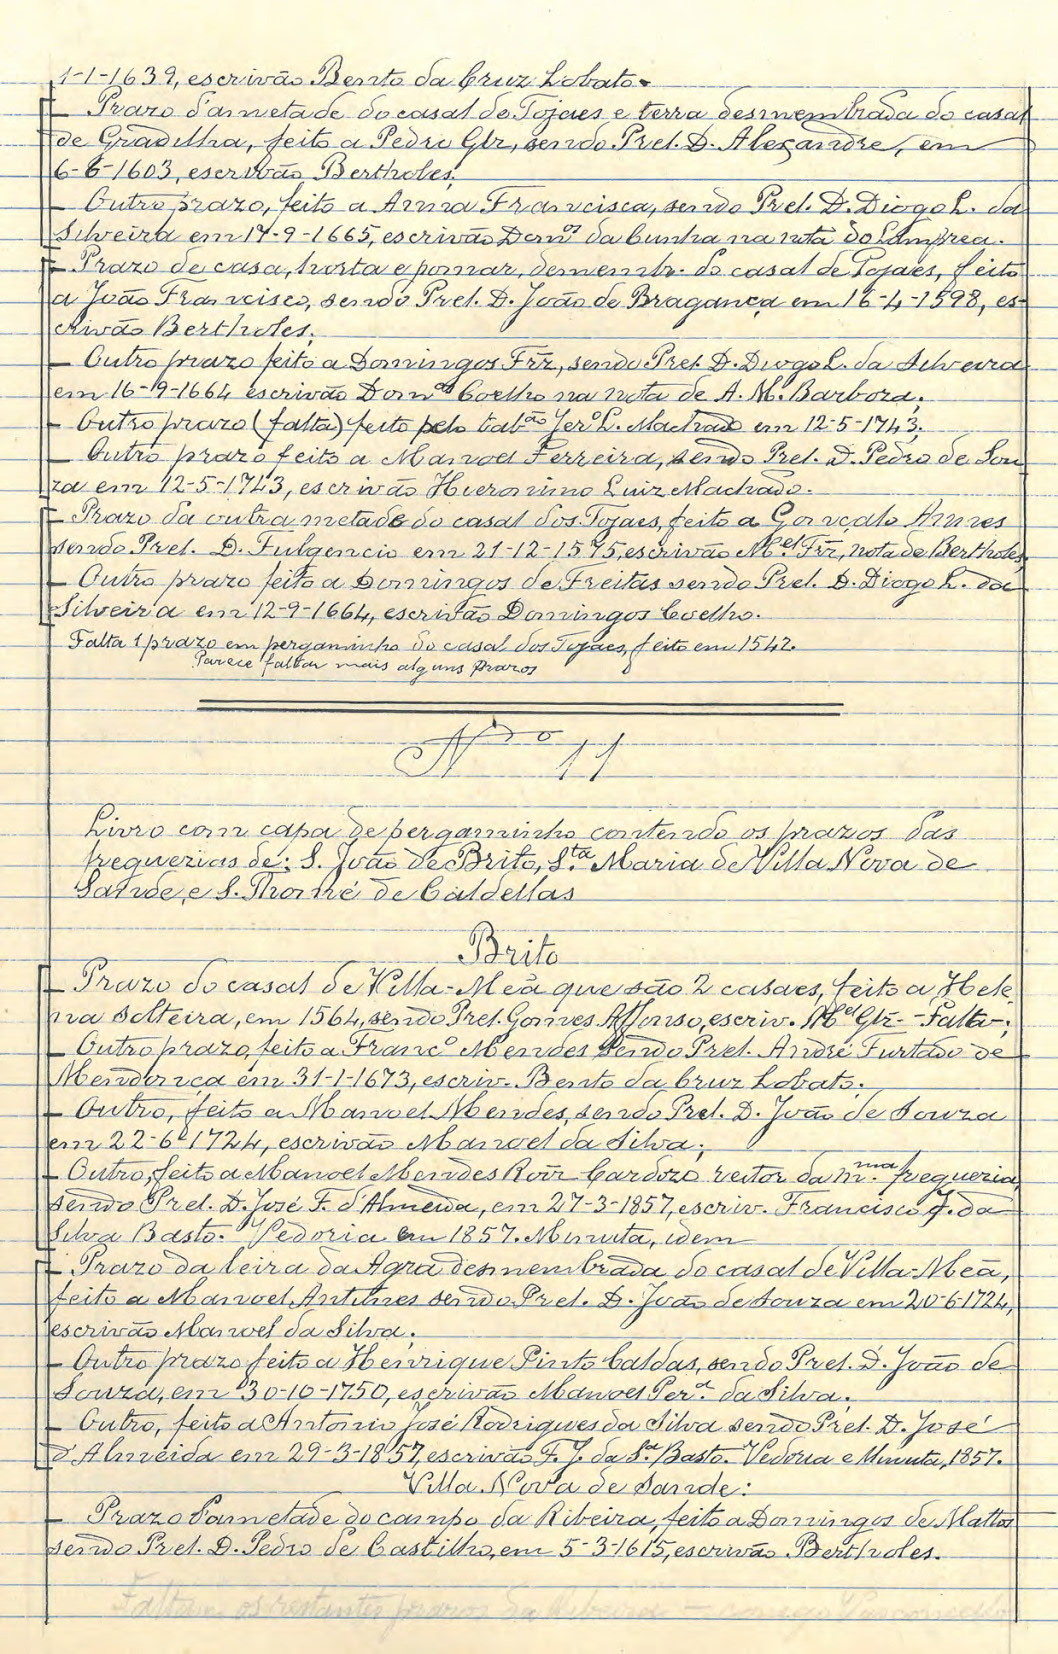 1-1-1639, escrivão Bento da Cruz Lobato.
— Prazo d'ametade do casal de Tojaes e terra desmembrada do casal
de Gradilha, feito a Pedro Glz, sendo Prel. D. Alexandre, em
6-6-1603, escrivão Bertholes;
— Outro prazo, feito a Anna Francisca, sendo Prel. D. Diogo L. da
Silveira em 17-9-1665, escrivão Domos da Cunha na nota do Lamprea.
— Prazo de casa, horta e pomar, desmemb. do casal de Tojaes, feito
a João Francisco, sendo Prel. D. João de Bragança em 16-4-1598, es-
crivão Bertholes;
— Outro prazo feito a Domingos Frz, sendo Prel. D. Diogo L. da Silveira
em 16-9-1664 escrivão Domos Coelho na nota de A. M. Barboza;
— Outro prazo (falta) feito pelo tabão Jero L. Machado em 12-5-1743;
— Outro prazo feito a Manoel Ferreira, sendo Prel. D. Pedro de Sou
za em 12-5-1743, escrivão Hieronimo Luiz Machado.
— Prazo da outra metade do casal dos Tojaes, feito a Gonçalo Annes
sendo Prel. D. Fulgencio em 21-12-1575, escrivão Mel Frz, nota de Bertholes
— Outro prazo feito a Domingos de Freitas sendo Prel. D. Diogo L. da
Silveira em 12-9-1664, escrivão Domingos Coelho.
Falta 1 prazo em pergaminho do casal dos Tojaes, feito em 1542.
Parece faltar mais alguns prazos
No 11
Livro com capa de pergaminho contendo os prazos das
freguezias de: S. João de Brito, Sta Maria de Villa Nova de
Sande, e S. Thomé de Caldellas
Brito
— Prazo do casal de Villa-Meã que são 2 casaes, feito a Hele
na solteira, em 1564, sendo Prel. Gomes Affonso, escriv. Mel Glz - Falta-;
— Outro prazo, feito a Franco Mendes sendo Prel. André Furtado de
Mendonça em 31-1-1673, escriv. Bento da Cruz Lobato;
— Outro, feito a Manoel Mendes, sendo Prel. D. João de Souza
em 22-6-1724, escrivão Manoel da Silva;
— Outro, feito a Manoel Mendes Roiz Cardozo reitor da mma freguezia,
sendo Prel. D. José F. d'Almeida, em 27-3-1857, escriv. Francisco J. da
Silva Basto. Vedoria em 1857. Minuta, idem
— Prazo da leira da Agra desmembrada do casal de Villa-Meã,
feito a Manoel Antunes sendo Prel. D. João de Souza em 20-6-1724,
escrivão Manoel da Silva;
— Outro prazo feito a Henrique Pinto Caldas, sendo Prel. D. João de
Souza, em 30-10-1750, escrivão Manoel Pera da Silva;
— Outro, feito a Antonio José Rodrigues da Silva sendo Prel. D. José
d'Almeida em 29-3-1857, escrivão F. J. da Sa Basto. Vedoria e Minuta, 1857.
Villa Nova de Sande:
— Prazo d'ametade do campo da Ribeira, feito a Domingos de Mattos
sendo Prel. D. Pedro de Castilho, em 5-3-1615, escrivão Bertholes.
Faltam os restantes prazos da Ribeira —